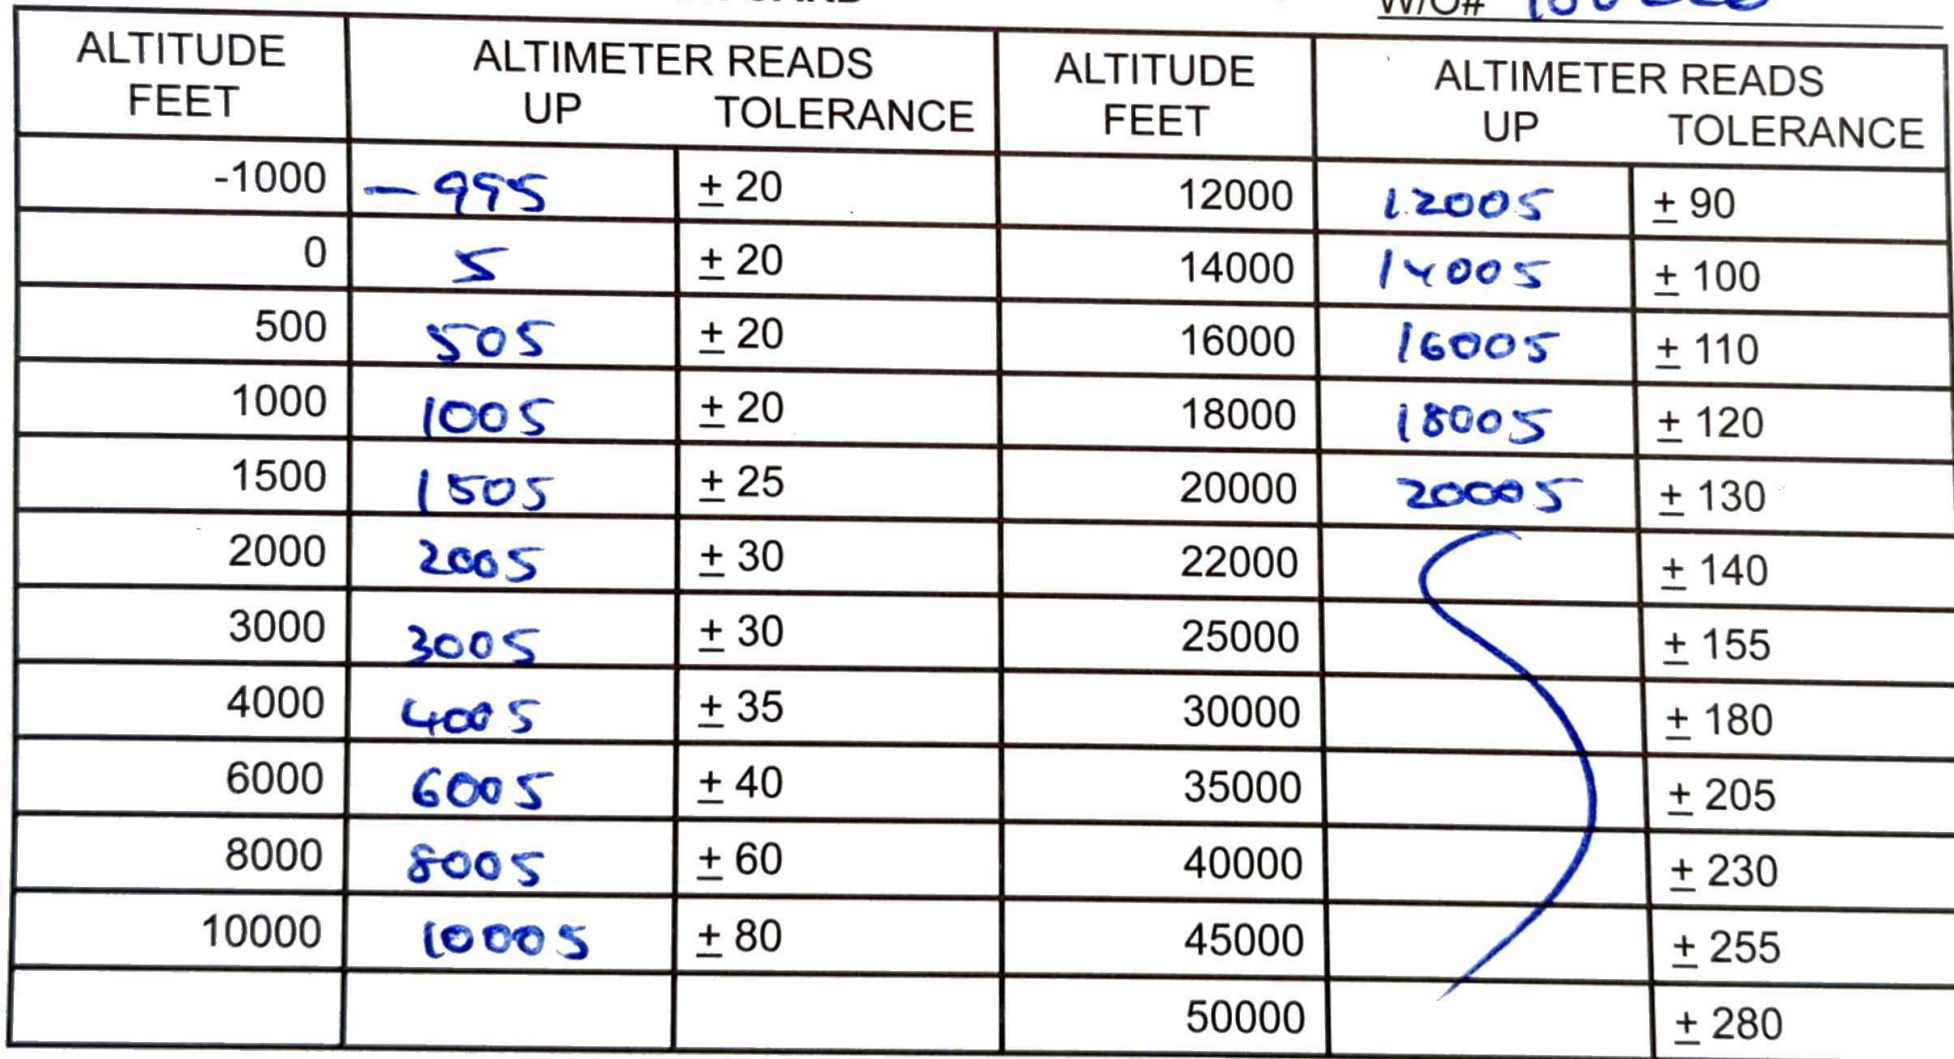 W/O#
ALTITUDE FEET ALTIMETER READS UP TOLERANCE ALTITUDE FEET ALTIMETER READS UP TOLERANCE
-1000 -995 ± 20 12000 12005 ± 90
0 5 ± 20 14000 14005 ± 100
500 505 ± 20 16000 16005 ± 110
1000 1005 ± 20 18000 18005 ± 120
1500 1505 ± 25 20000 20005 ± 130
2000 2005 ± 30 22000 ± 140
3000 3005 ± 30 25000 ± 155
4000 4005 ± 35 30000 ± 180
6000 6005 ± 40 35000 ± 205
8000 8005 ± 60 40000 ± 230
10000 10005 ± 80 45000 ± 255
50000 ± 280